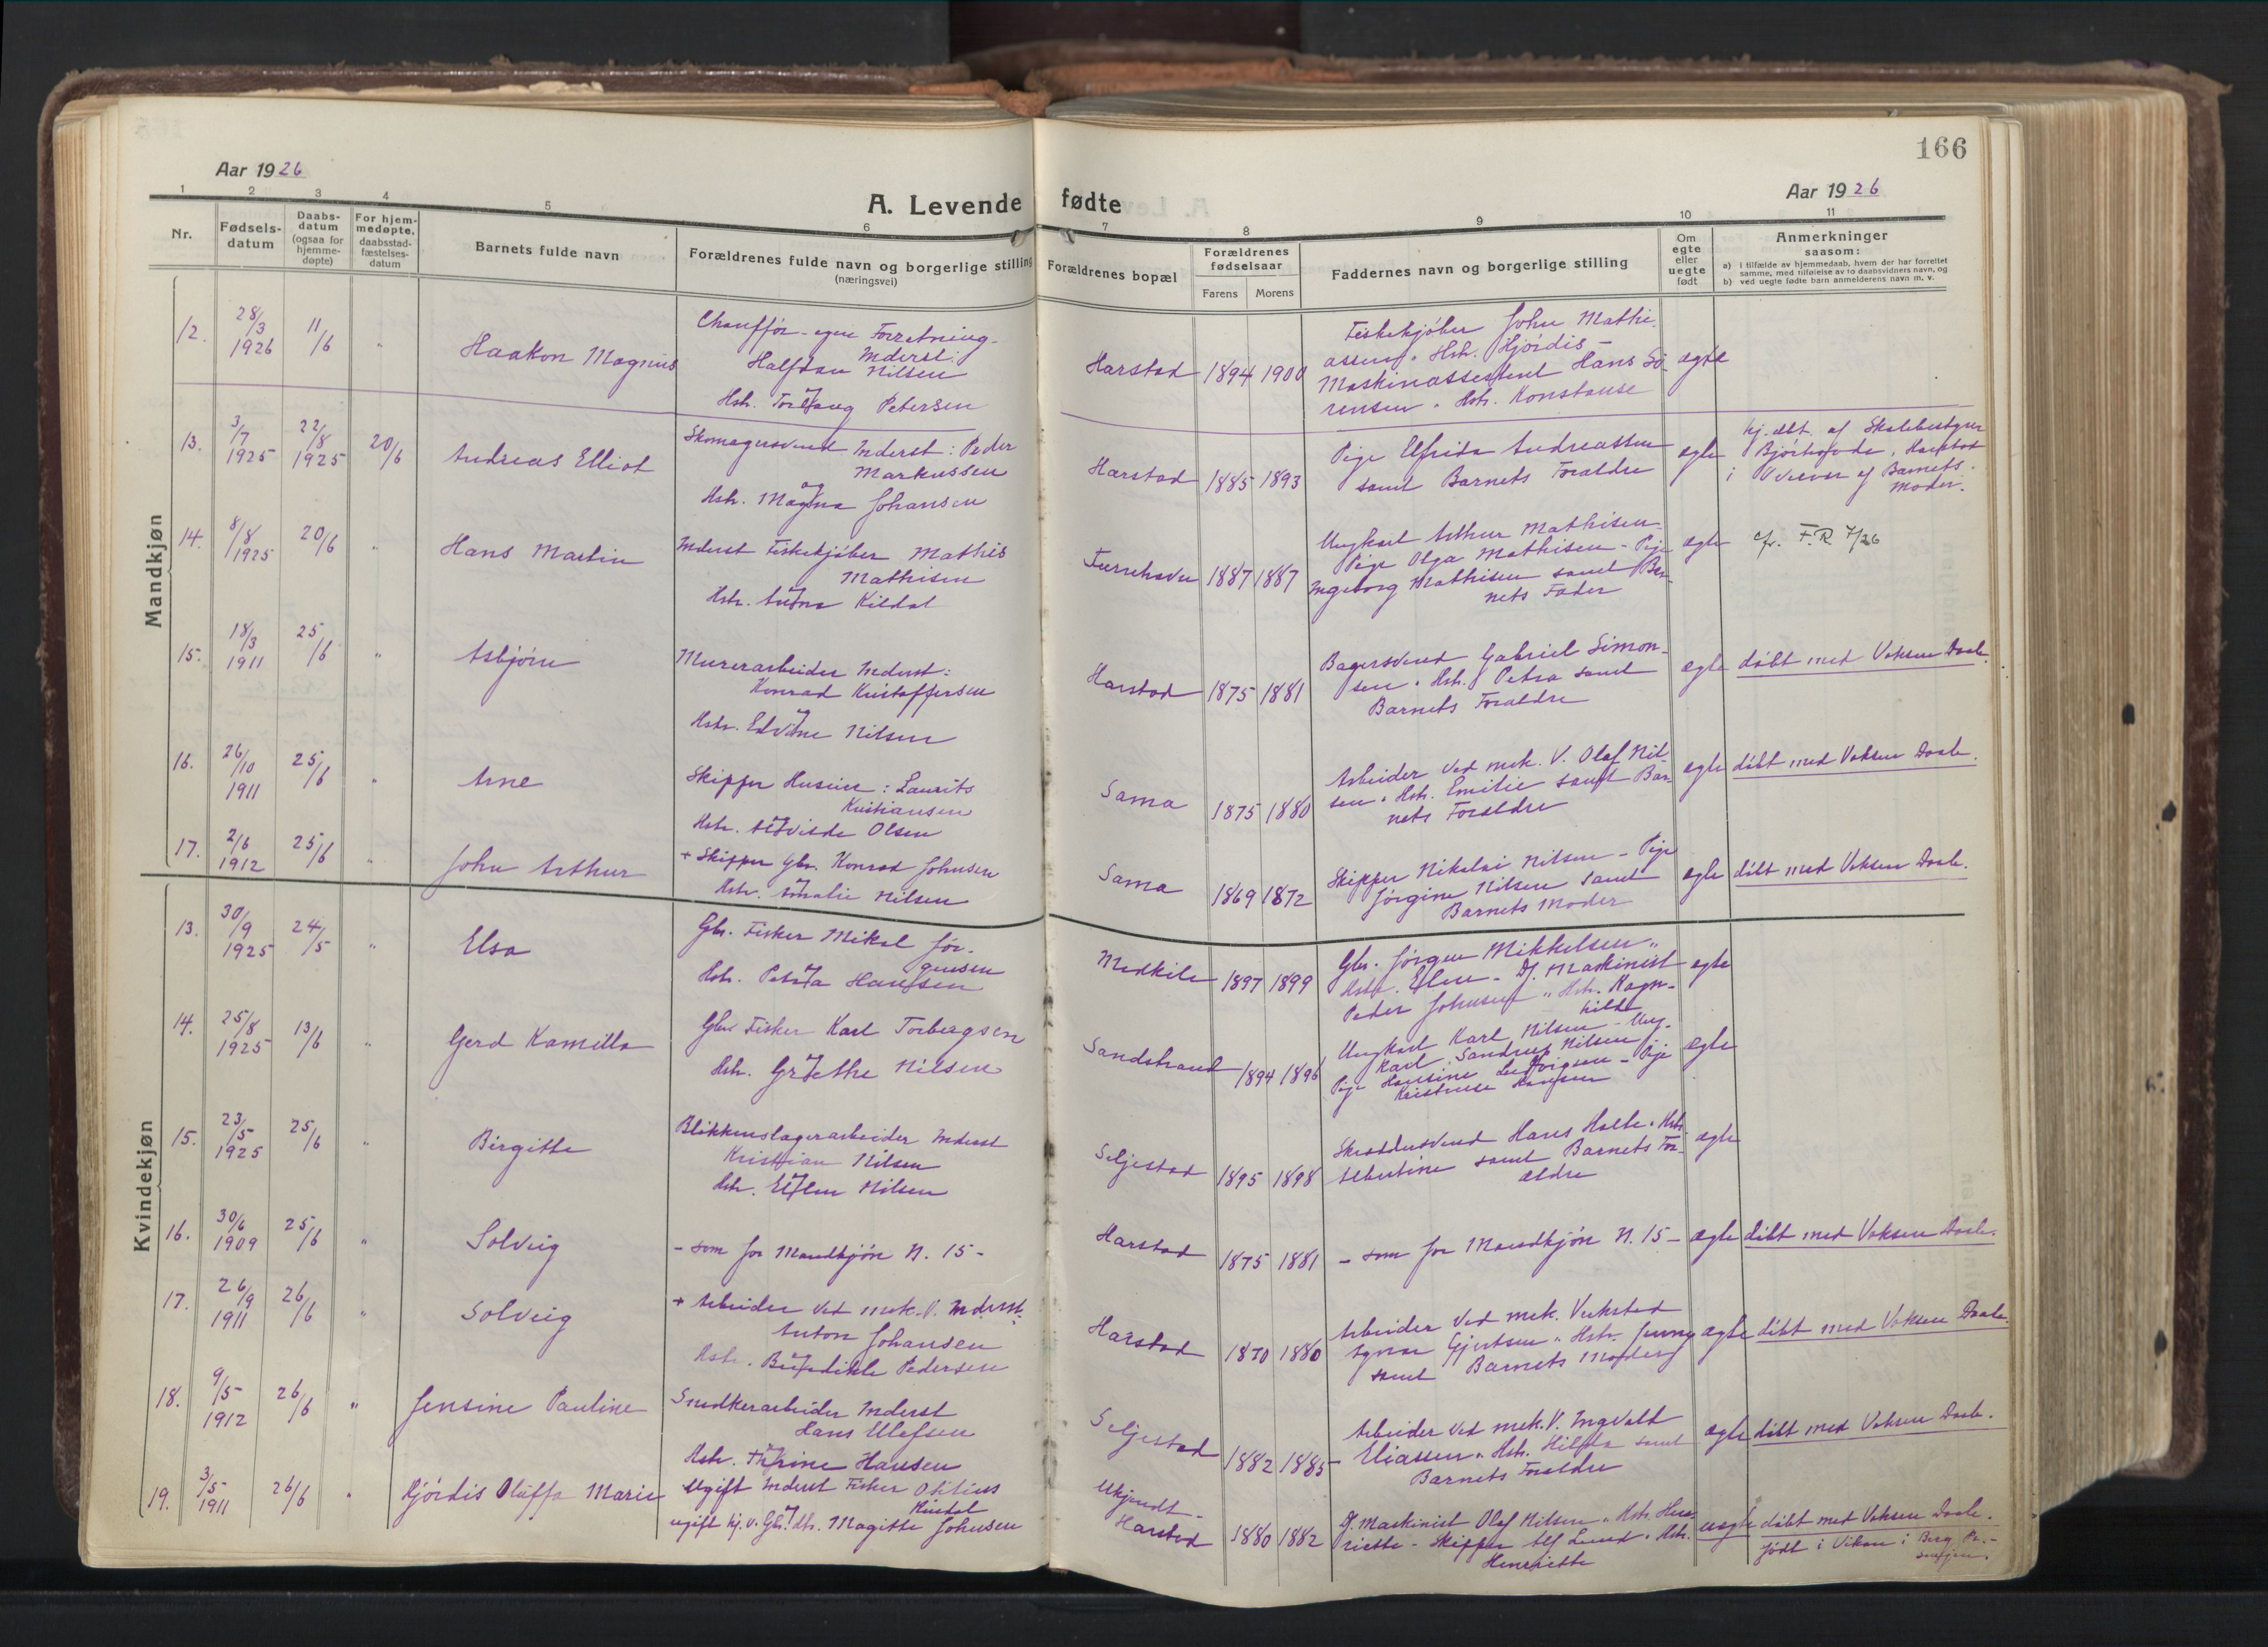 166
Aar 1926
Aar 1926
A. Levende fødte
1 2 3 4 5 6 7 8 9 10 11
Nr.
Fødsels-
datum
Daabs-
datum
(ogsaa for
hjemme-
døpte)
For hjem-
medøpte,
daabsstad-
fæstelses-
datum
Barnets fulde navn
Forældrenes fulde navn og borgerlige stilling
(næringsvei)
Forældrenes bopæl
Forældrenes
fødselsaar
Farens
Morens
Faddernes navn og borgerlige stilling
Om
egte
eller
uegte
født
Anmerkninger
saasom:
a) i tilfælde av hjemmedaab, hvem der har forrettet
samme, med tilføielse av to daabsvidners navn, og
b) ved uegte fødte barn anmelderens navn m. v.
Mandkjøn
12.
28/3
1926
11/6
"
Haakon Magnus
Chauffør - egen Forretning -
Inderst:
Halfdan Nilsen
og
Hstr. Torlaug Petersen
Harstad
1894 1900
Fiskekjøber John Mathi-
assen, Hstr. Hjørdis -
Maskinassistent Hans Sø-
rensen, Hstr. Konstanse
egte
13.
3/7
1925
22/8
1925
20/6
Andreas Elliot
Skomagersvend Inderst: Peder
Markussen
og
Hstr. Magna Johansen
Harstad
1885 1893
Pige Elfrida Andreassen
samt Barnets Forældre
egte
hj. dbt. af Skolebestyrer
Harstad
i Nærvær af Barnets
Moder.
14.
8/8
1925
20/6
"
Hans Martin
Inderst Fiskekjøber Mathis
Mathisen
og
Hstr. Anna Kildal
1887 1887
Ungkarl Arthur Mathisen
Pige Olga Mathisen - Pige
Ingeborg Mathisen samt Bar-
nets Fader
egte
cfr. F.R. 7/26
15.
18/3
1911
25/6
"
Asbjørn
Murerarbeider Inderst:
Konrad Kristoffersen
og
Hstr. Edvine Nilsen
Harstad
1875 1881
Bagersvend Gabriel Simon-
sen, Hstr. Petra samt
Barnets Forældre
egte
døbt med Voksen Daab.
16.
26/10
1911
25/6
"
Arne
Skipper Huseier: Laurits
Kristiansen
og
Hstr. Olsen
Sama
1875 1880
Arbeider ved mek. V. Olaf Nil-
sen, Hstr. Emilie samt Bar-
nets Forældre
egte
døbt med Voksen Daab.
17.
2/6
1912
25/6
"
John Arthur
+ Skipper Gbr. Konrad Johnsen
og
Hstr. Amalie Nilsen
Sama
1869 1872
Skipper Nikolai Nilsen - Pige
Jørgine Nilsen samt
Barnets Moder
egte
døbt med Voksen Daab.
Kvindekjøn
13.
30/9
1925
24/5
"
Elsa
Gbr. Fisker Mikal Jør-
gensen
og
Hstr. Petra Hansen
Medkila
1897 1899
Gbr. Jørgen Mikkelsen "
Hstr. Elen - Df. Maskinist
Peder Johnsen " Hstr. Ragn-
hilda
egte
14.
25/8
1925
13/6
"
Gerd Kamilla
Gbr. Fisker Karl Torbergsen
og
Hstr. Grethe Nilsen
Sandstrand
1894 1896
Ungkarl Karl Nilsen - Ung-
karl Sandrup Nilsen
Pige Hansine Ludvigsen - Pige
Kristense Hansen
egte
15.
23/5
1925
25/6
"
Birgitte
Blikkenslagerarbeider Inderst
Kristian Nilsen
og
Hstr. Ellen Nilsen
Seljestad
1895 1898
Hans Holte, Hstr.
Albertine samt Barnets For-
ældre
egte
16.
30/6
1909
25/6
"
Solveig
- som for Mandkjøn N. 15 -
Harstad
1875 1881
- som for Mandkjøn N. 15 -
egte
døbt med Voksen Daab.
17.
26/9
1911
26/6
"
Solveig
+ Arbeider ved mek. V. Inderst:
Anton Johansen
og
Hstr. Benedikte Pedersen
Harstad
1870 1880
Arbeider ved mek. Verksted
Gjertsen " Hstr. Jenny
samt Barnets Moder
egte
døbt med Voksen Daab.
18.
9/5
1912
26/6
"
Jensine Pauline
Snedkerarbeider Inderst
Hans Olefsen
og
Hstr. Thrine Hansen
Seljestad
1882 1885
Arbeider ved mek. V. Ingvald
Eliassen, Hstr. Hilda samt
Barnets Forældre
egte
døbt med Voksen Daab.
19.
3/5
1911
26/6
"
Hjørdis Oluffa Marie
Ugift Inderst Fisker Otitius
Kindal
og
ugift hj. v. Gbr. dtr. Magitte Johnsen
Ukjendt -
Harstad
1880 1882
Df. Maskinist Olaf Nilsen " Hstr. Hen-
riette - Skipper Alf Lund " Hstr.
Henriette
uegte
døbt med Voksen Daab.
født i Viken i Berg Pr. -
Senjen.